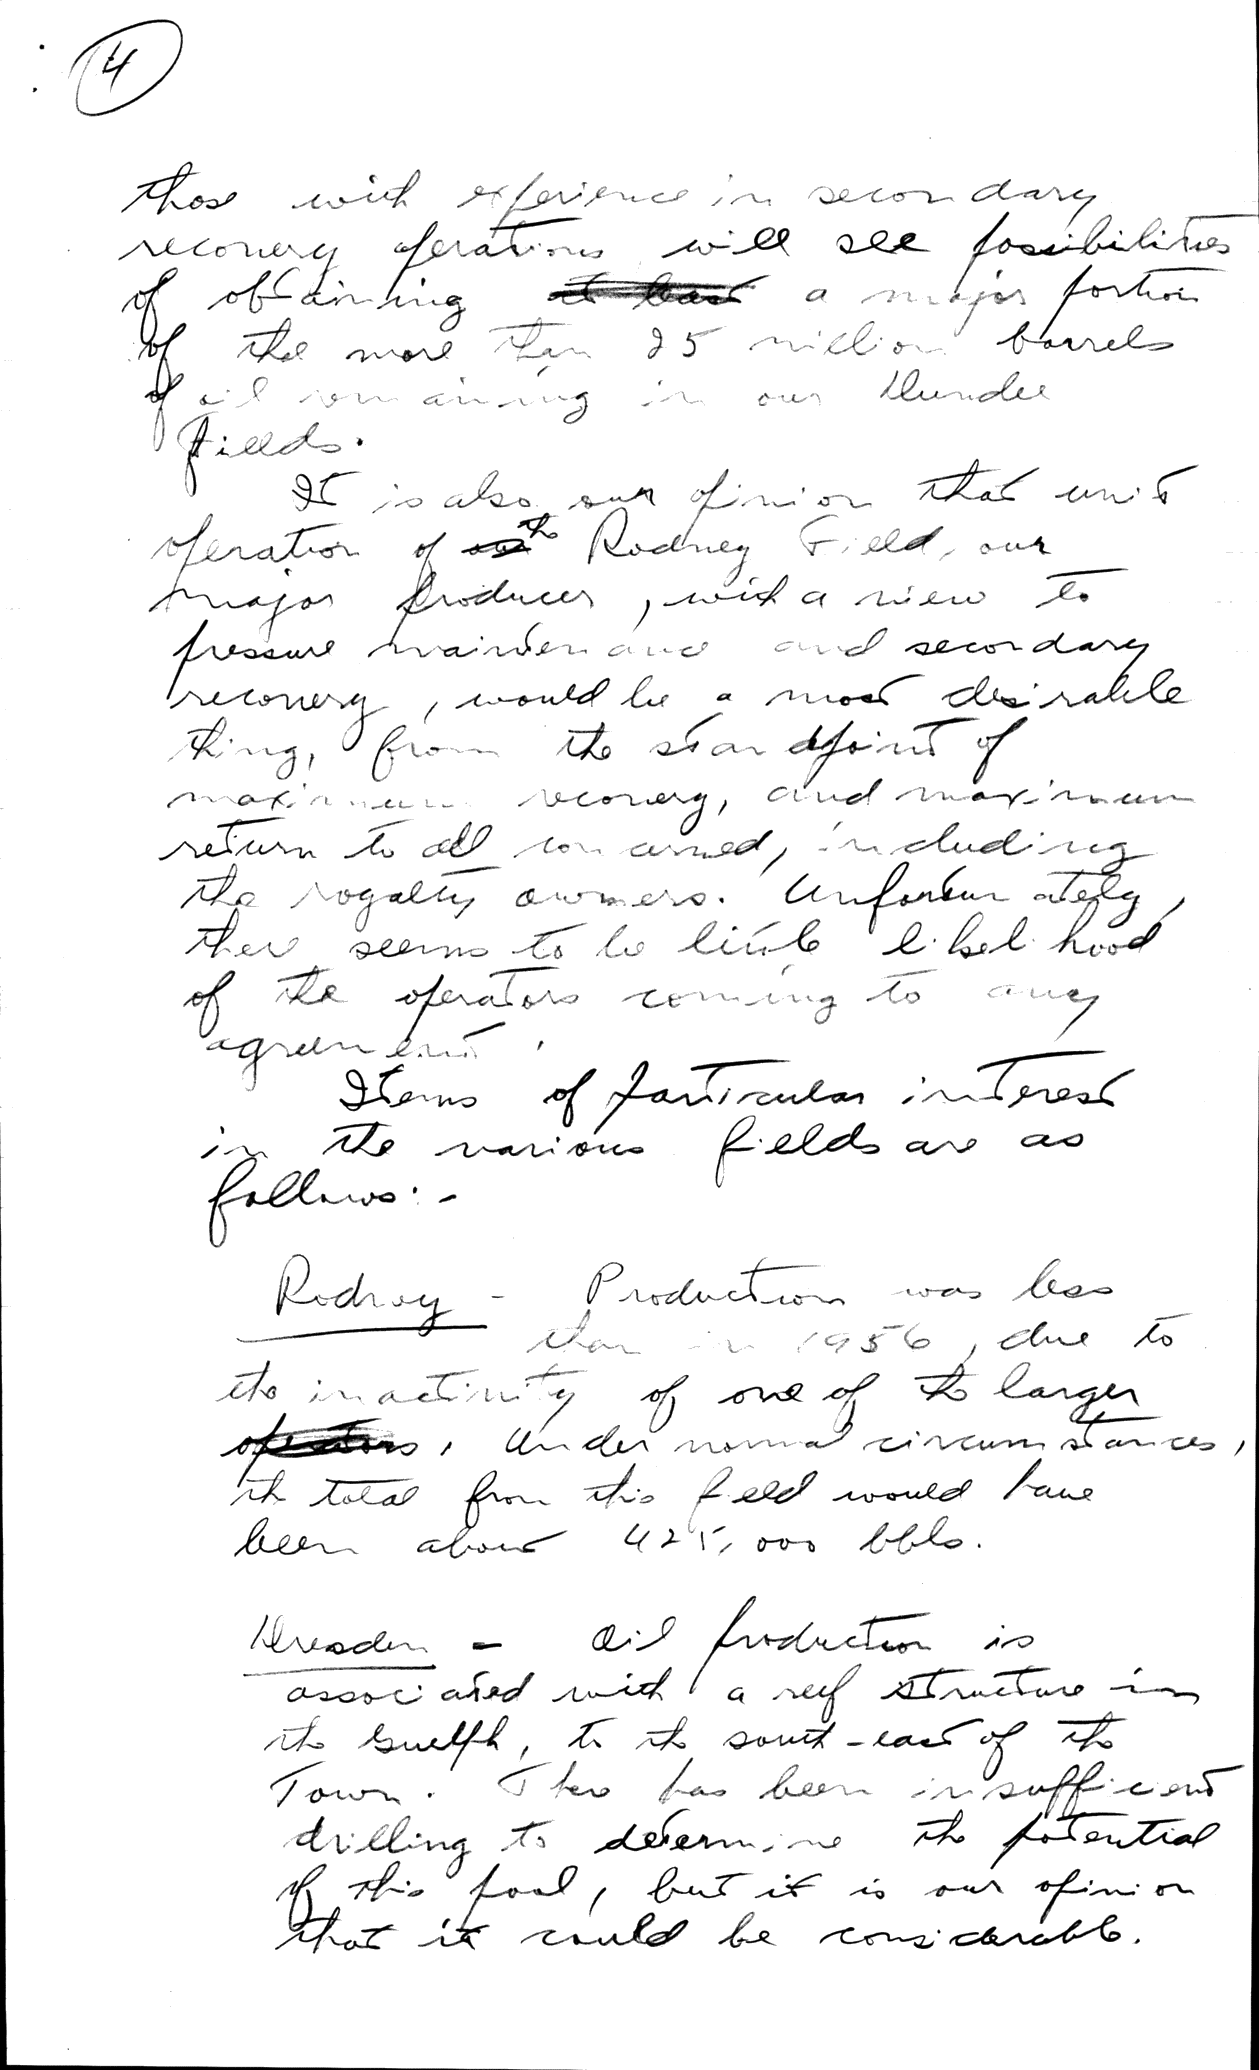 4
those with experience in secondary
recovery operations will see possibilities
of obtaining at least a major portion
of the more than 25 million barrels
of oil remaining in our Dundee
fields.
It is also our opinion that unit
operation of the Rodney Field, our
major producer, with a view to
pressure maintenance and secondary
recovery, would be a most desirable
thing, from the standpoint of
maximum recovery, and maximum
return to all concerned, including
the royalty owners. Unfortunately,
there seems to be little likelihood
of the operators coming to any
agreement.
Items of particular interest
in the various fields are as
follows:-
Rodney - Production was less
than in 1956, due to
the inactivity of one of the larger
operators. Under normal circumstances,
the total from this field would have
been about 425,000 bbls.
Dresden - Oil production is
associated with a reef structure in
the Guelph, to the south-east of the
Town. There has been insufficient
drilling to determine the potential
of this pool, but it is our opinion
that it could be considerable.